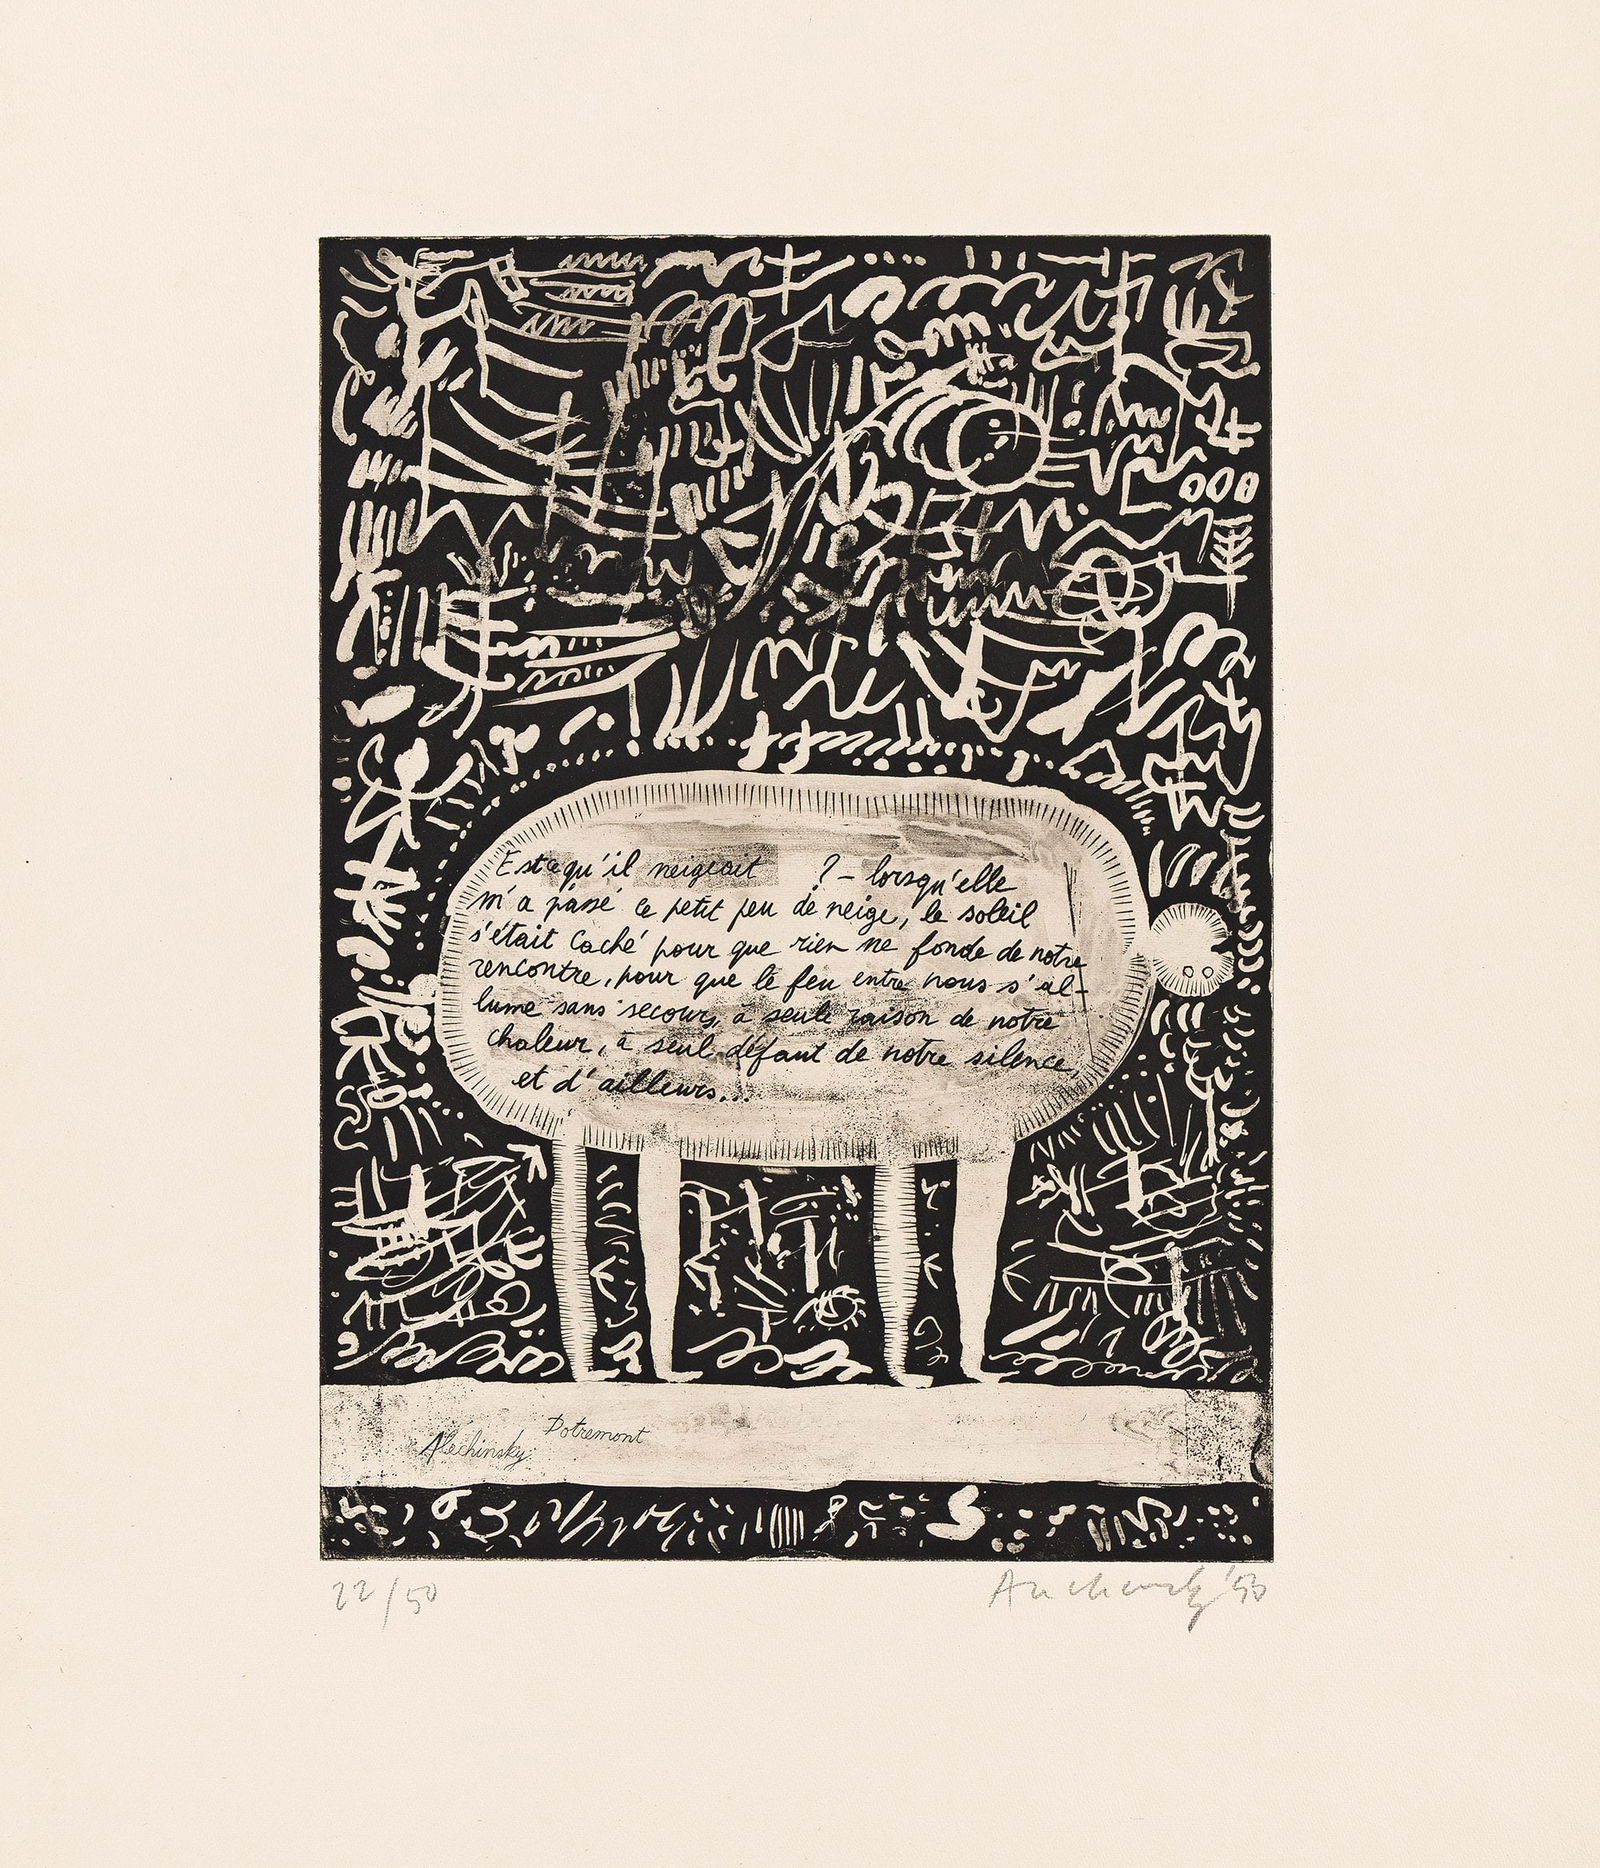 Est ce qu'il neigeait ? – lorsqu'elle
m'a passé ce petit peu de neige, le soleil
s'était caché pour que rien ne fonde de notre
rencontre, pour que le feu entre nous s'al-
lume sans secours, à seule raison de notre
chaleur, à seul défaut de notre silence,
et d'ailleurs...
Dotremont
Alechinsky
22/50
Alechinsky '50